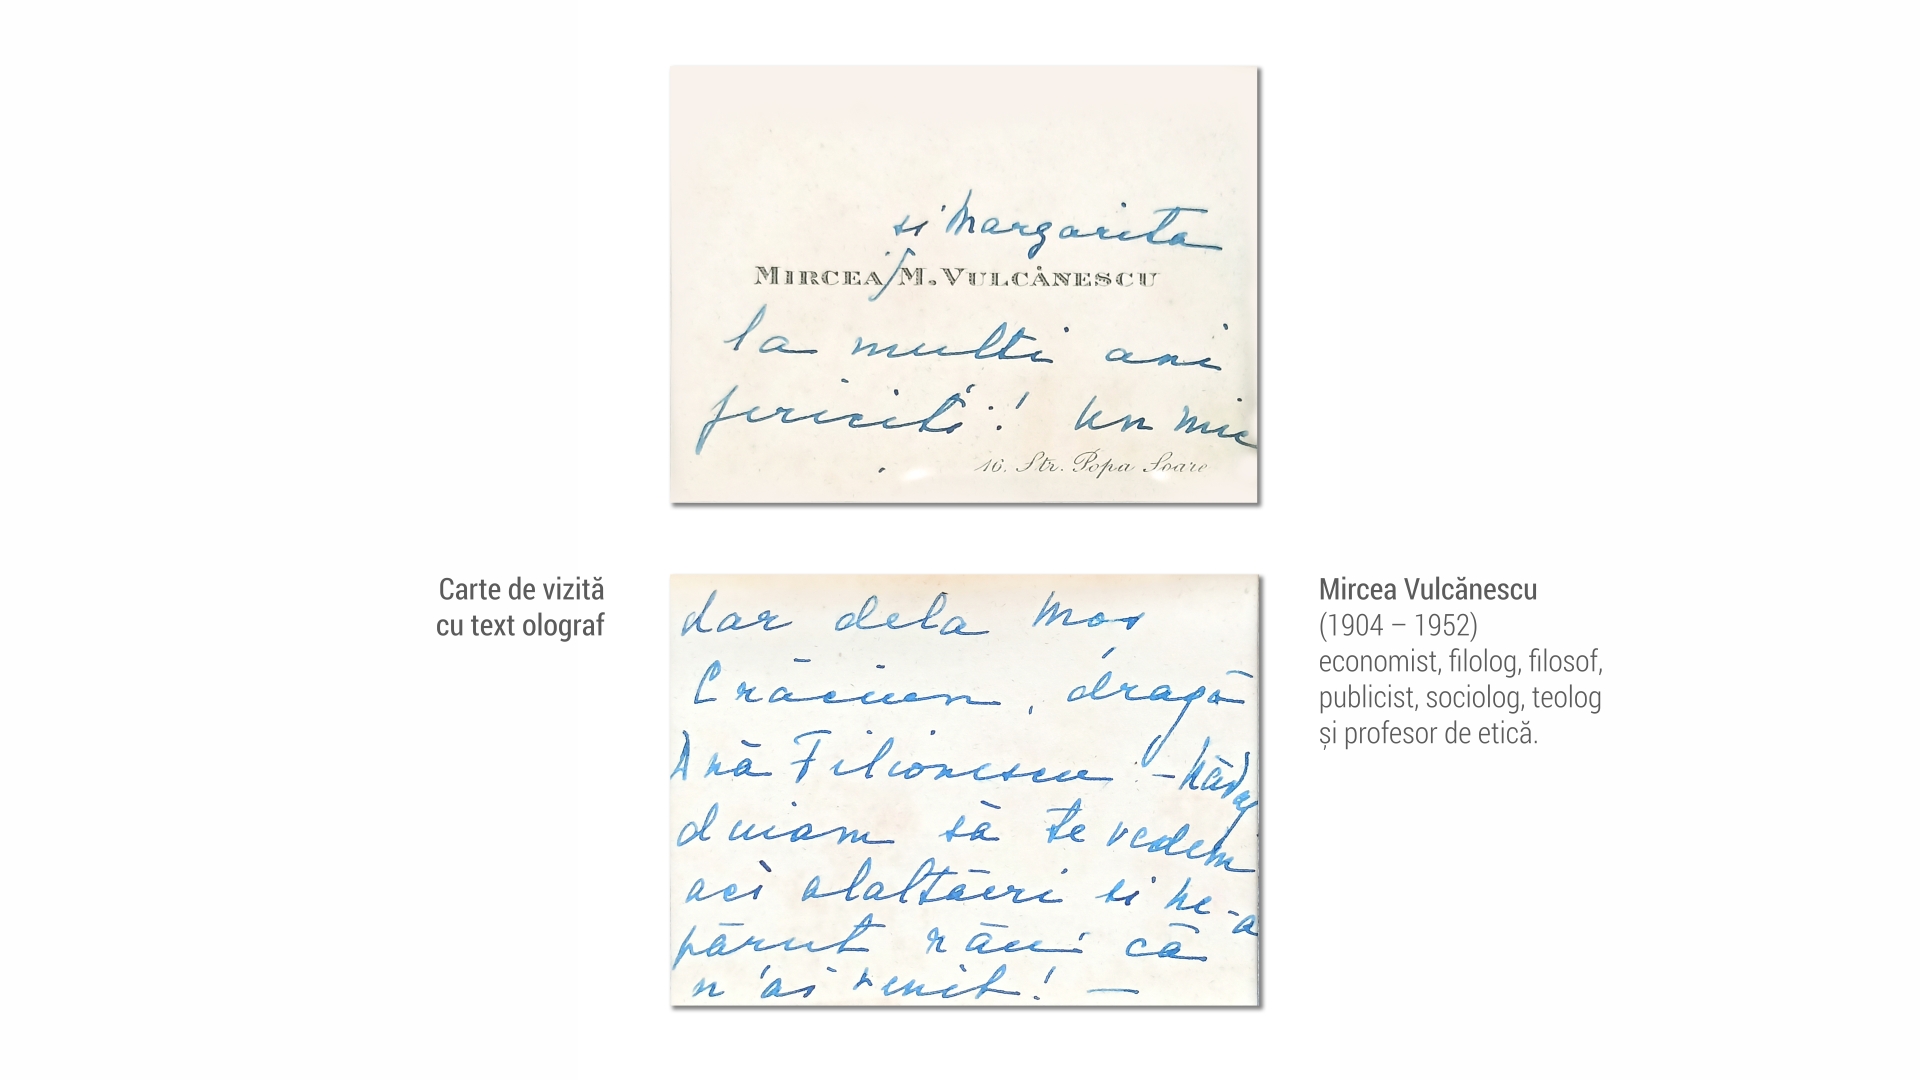 si Margarita
MIRCEA M. VULCĂNESCU
la multi ani
fericiti! Un mic
16. Str. Popa Soare
Carte de vizită
cu text olograf
dar dela Moş
Crăciun, dragă
Ană Filionescu – Nădăj
duiam să te vedem
aci alaltăeri si ne-a
părut rău că
n'ai venit! —
Mircea Vulcănescu
(1904 – 1952)
economist, filolog, filosof,
publicist, sociolog, teolog
și profesor de etică.